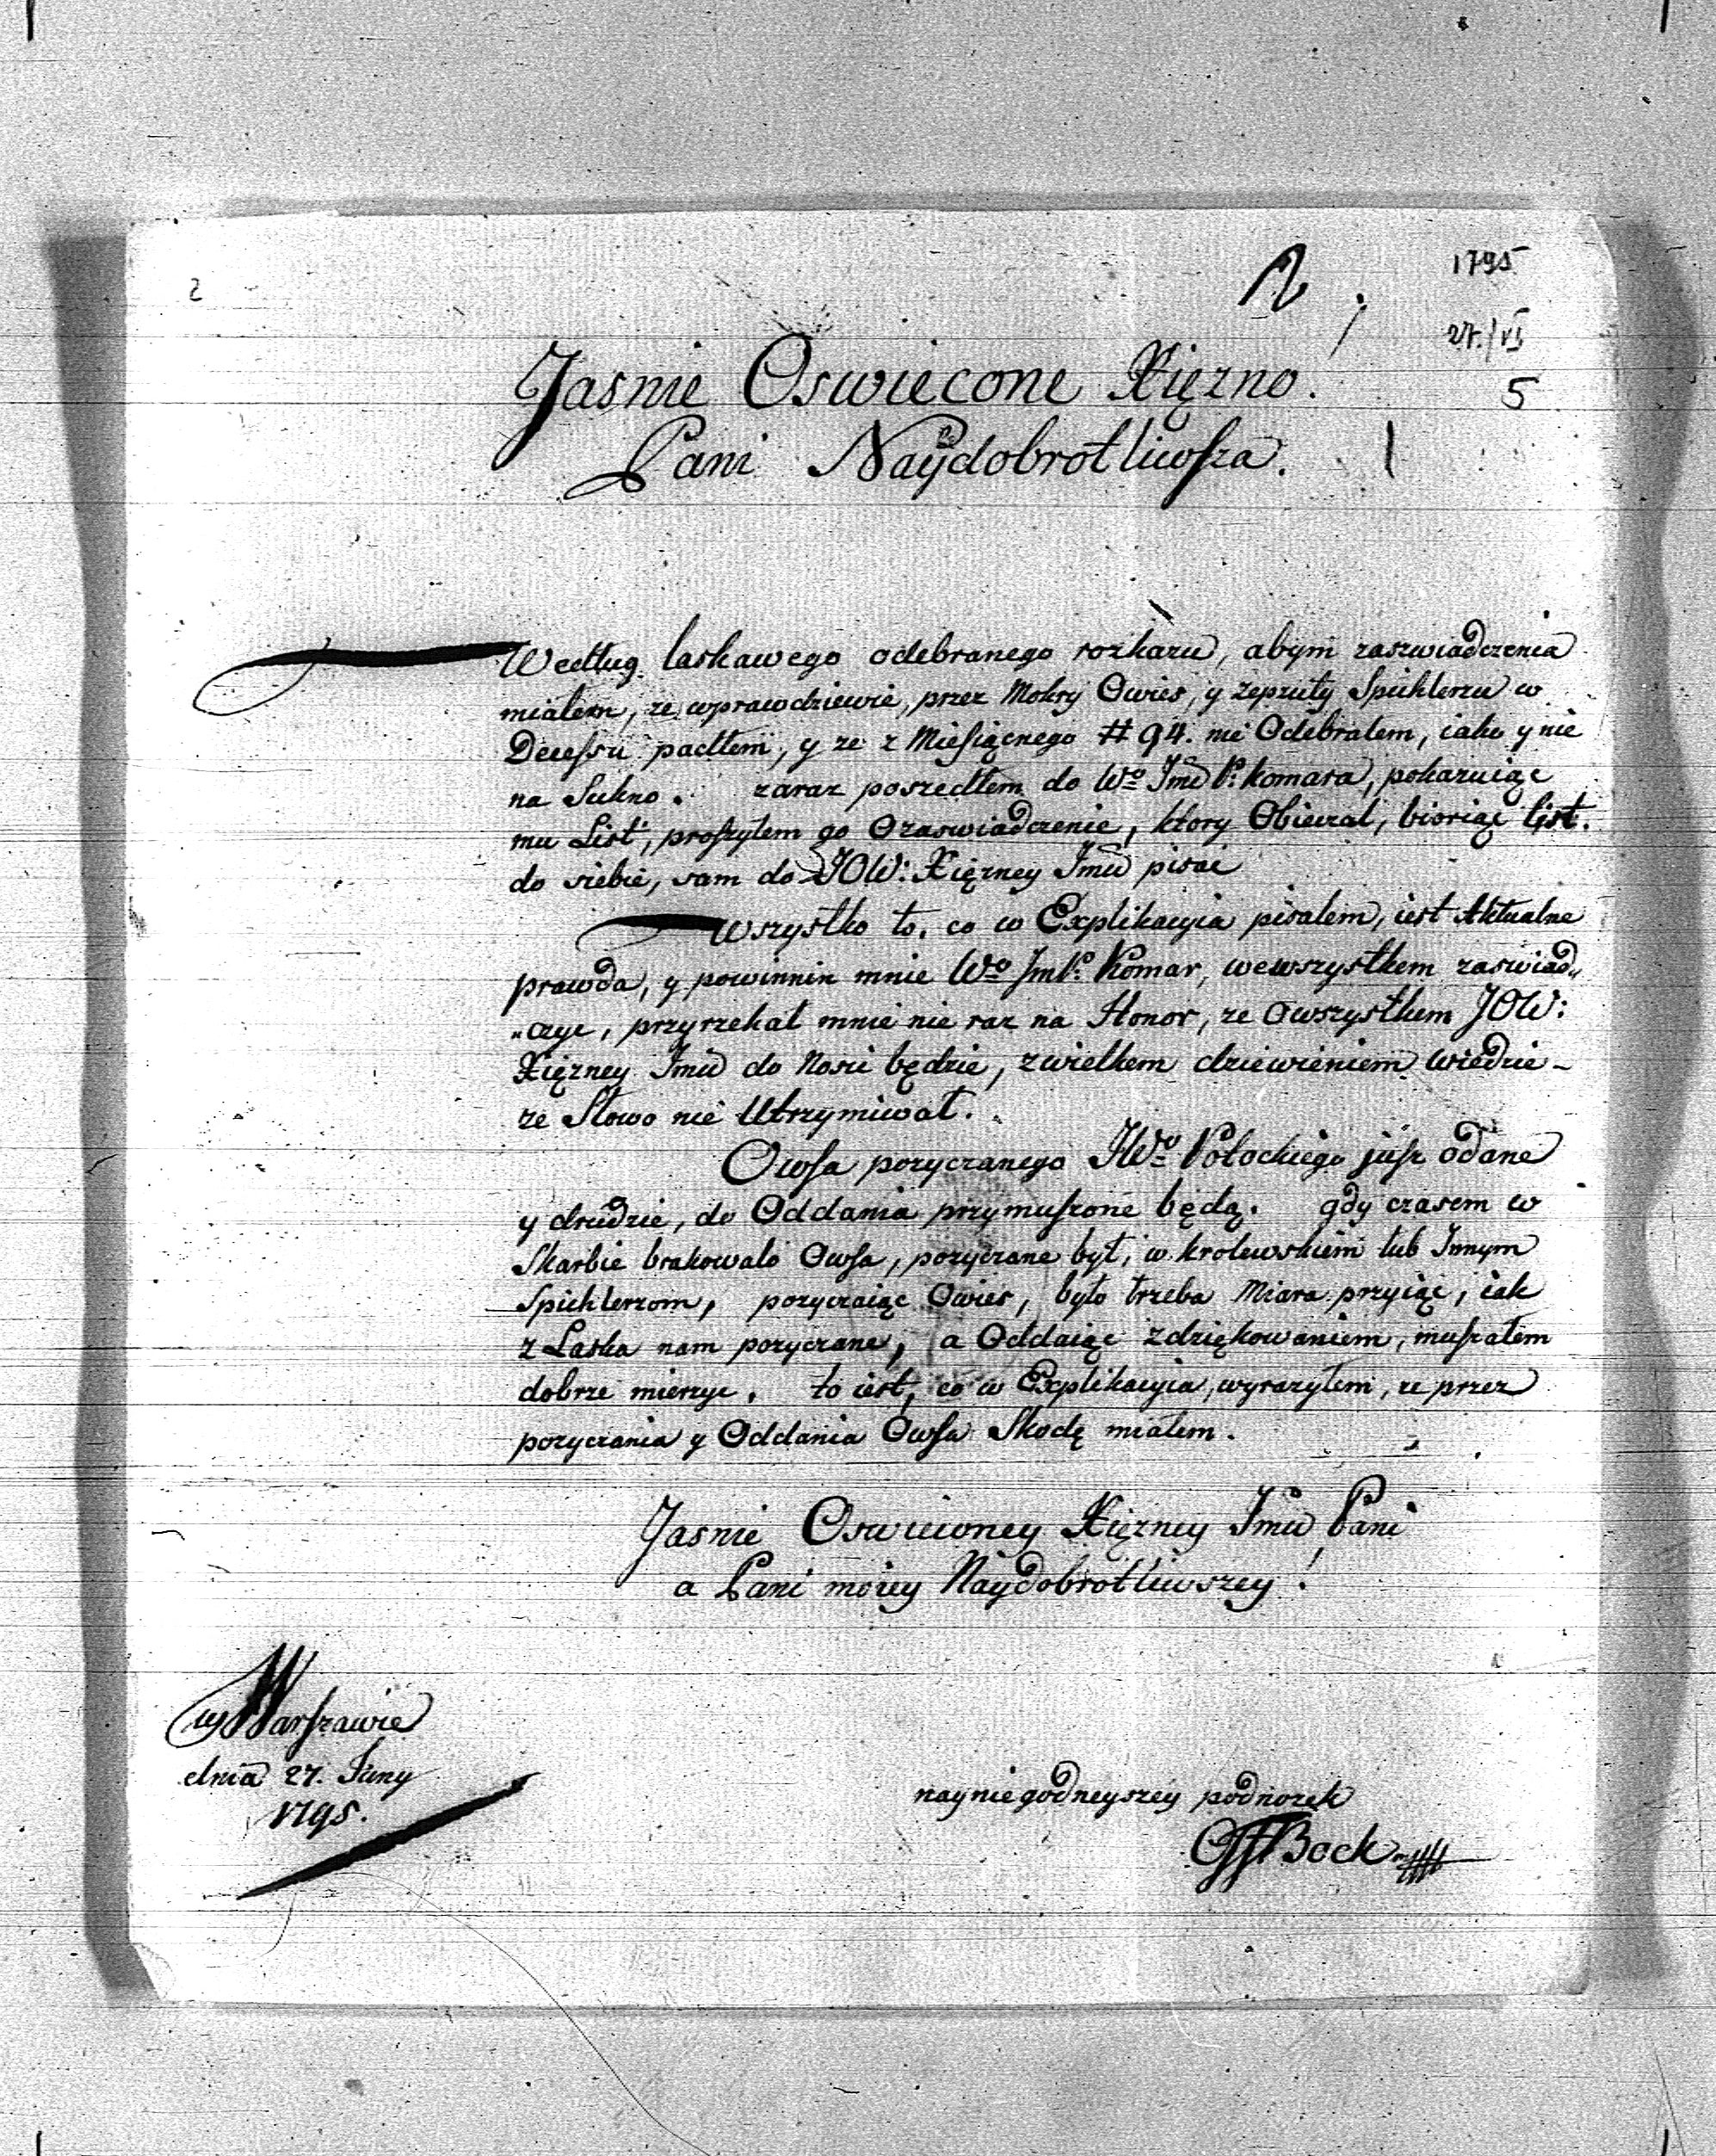 2
1795
27./VI
5
Jasnie Oswiecone Xięzno.
Pani Naydobrotliwsza.
Według laskawego odebranego rozkazu, abym zaswiadczenia
mialem, ze wprawdziewie, przez Mokry Owies, y zepsuty Spichlerzu w
Decessu padłem, y ze z Miesiącnego # 94. nie Odebralem, iako y nie
na Sukno. zaraz poszedłem do Wo Jmci P: Komara, pokazuiąc
mu List, proszylem go Ozaswiadczenie, ktory Obieczal, bioriąc list.
do siebie, sam do JOW: Xięzney Jmci pisac
Wszystko to, co w Explikacyia pisalem, iest Aktualne
prawda, y powinnin mnie Wo JmP: Komar, wewszystkem zaswiad„
„czyc, przyrzekał mnie nie raz na Honor, ze Owszystkem JOW:
Xięzney Jmci do Nosić będzie, zwielkem dziewieniem wiedzie-
ze Słowo nie Utrzymiwał.
Owsa pozyczanego JWo Potockiego jusz odane
y drudzie, do Oddania przymuszone będą. gdy czasem w
Skarbie brakowalo Owsa, pozyczane był, w krolewskiem lub Innym
Spichlerzom, pozyczaiąc Owies, było trzeba Miara przyiąc, iak
z Laska nam pozyczane, a Oddaiąc zdziękowaniem, muszalem
dobrze mierzyc. to iest, co w Explikacyia, wyrazylem, ze przez
pozyczania y Oddania Owsa Skodę mialem.
Jasnie Oswieconey Xięzney Jmci Pani
a Pani moiey Naydobrotliwszey!
w Warszawie
dnia 27. Juny
1795.
nayniegodneyszey podnozek
Bock